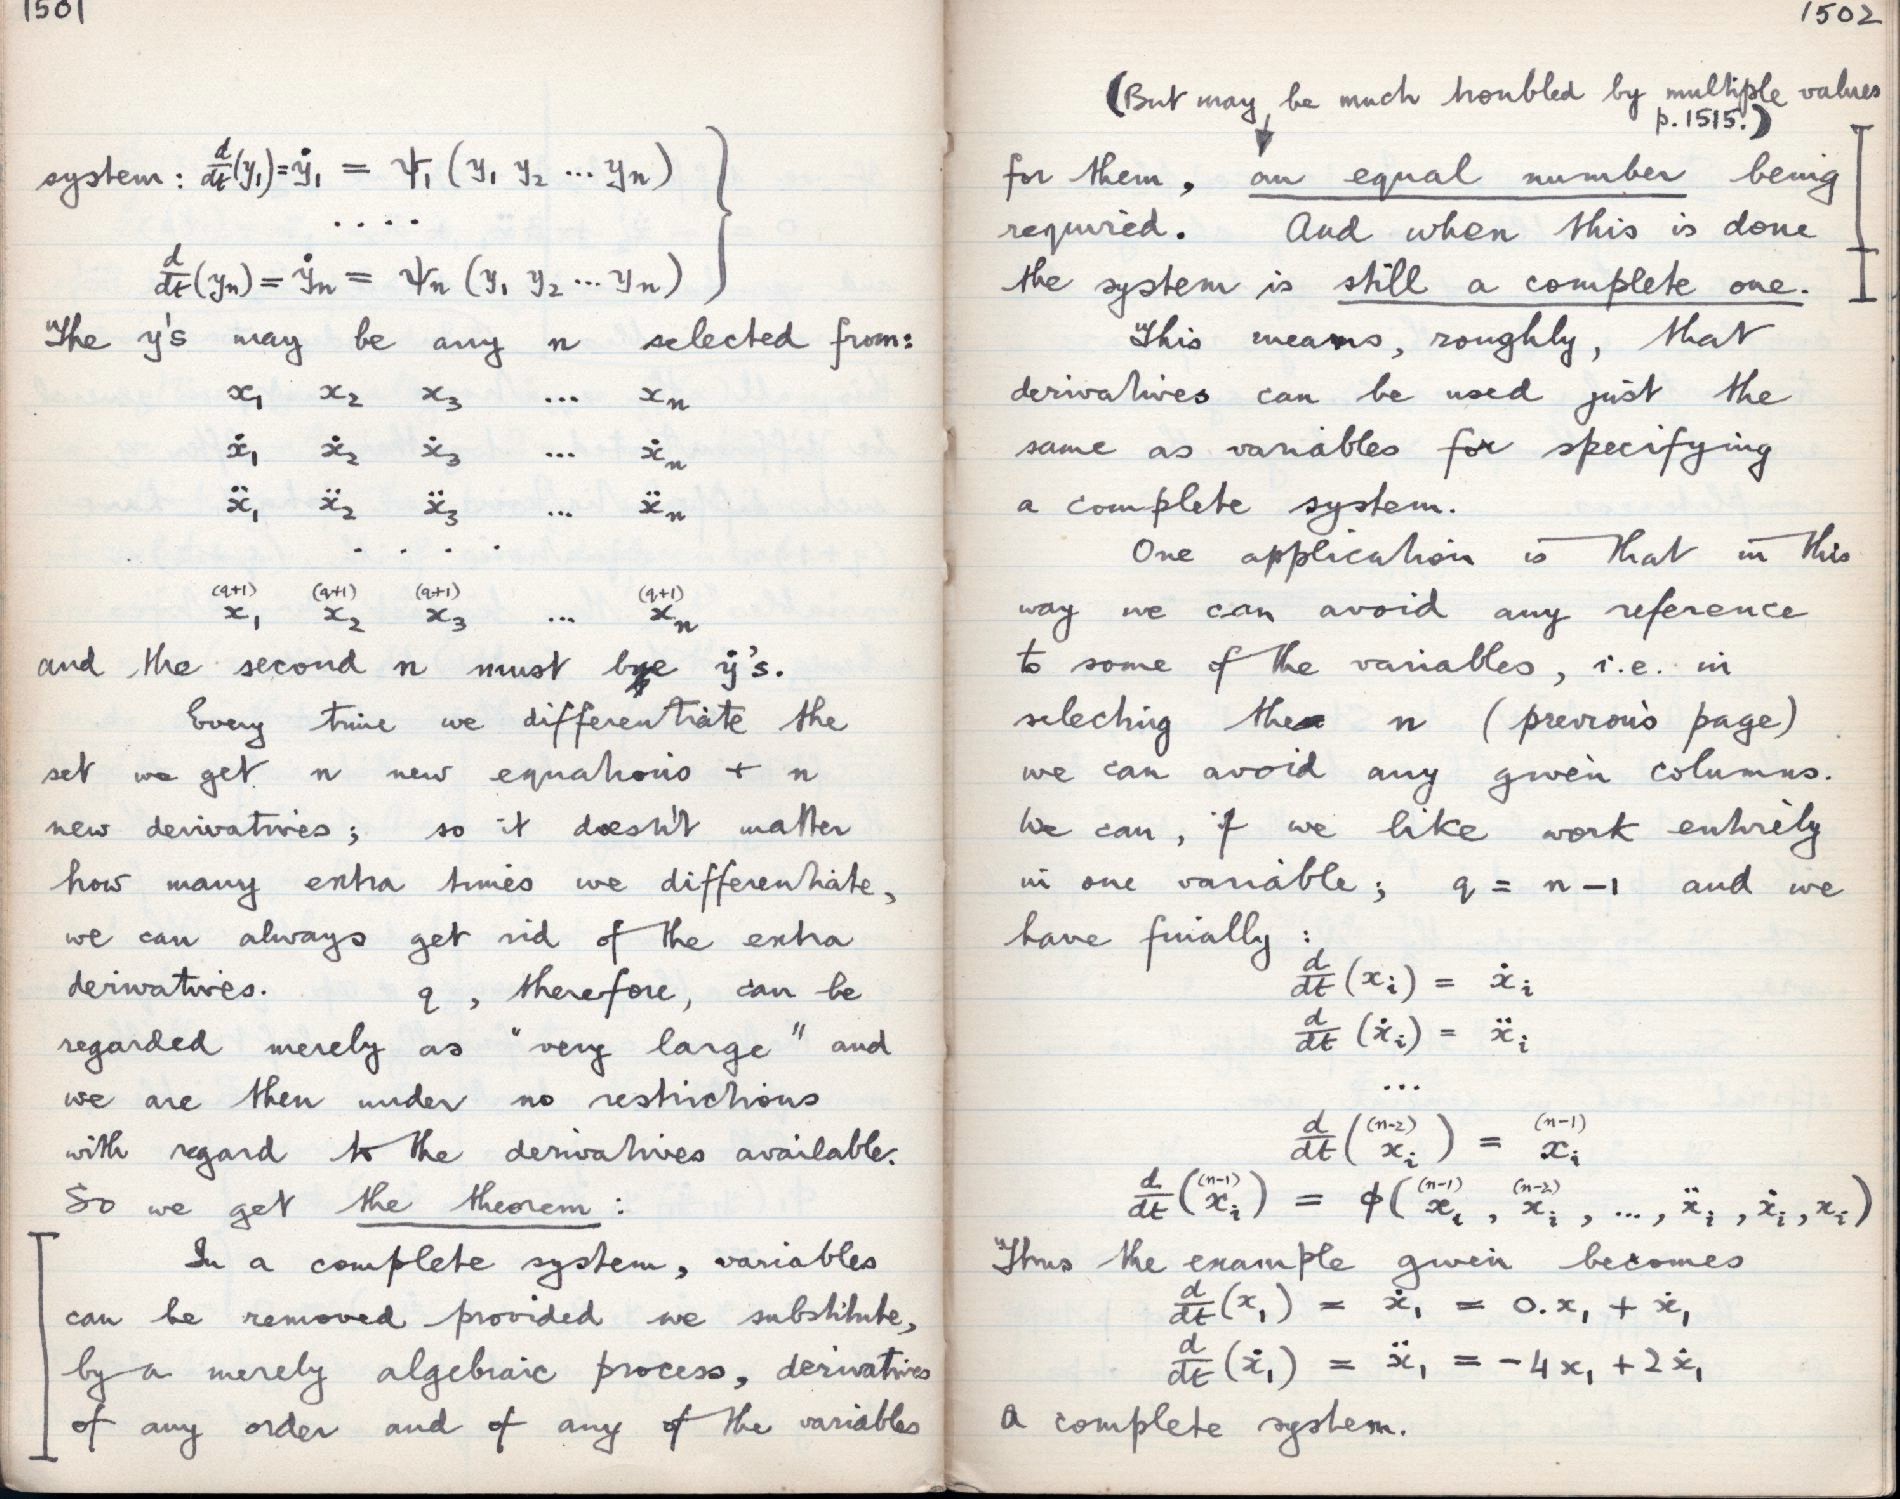 1501
system: d/dt(y₁) = ẏ₁ = ψ₁ (y₁ y₂ ... yₙ)
. . . .
d/dt(yₙ) = ẏₙ = ψₙ (y₁ y₂ ... yₙ)
The y's may be any n selected from:
x₁ x₂ x₃ ... xₙ
ẋ₁ ẋ₂ ẋ₃ ... ẋₙ
ẍ₁ ẍ₂ ẍ₃ ... ẍₙ
. . . .
(q+1) (q+1) (q+1) (q+1)
x₁ x₂ x₃ ... xₙ
and the second n must be ẏ's.
Every time we differentiate the
set we get n new equations + n
new derivatives; so it doesn't matter
how many extra times we differentiate,
we can always get rid of the extra
derivatives. q, therefore, can be
regarded merely as "very large" and
we are then under no restrictions
with regard to the derivatives available.
So we get the theorem:
In a complete system, variables
can be removed provided we substitute,
by a merely algebraic process, derivatives
of any order and of any of the variables
1502
(But may be much troubled by multiple values
p. 1515.)
for them, an equal number being
required. And when this is done
the system is still a complete one.
This means, roughly, that
derivatives can be used just the
same as variables for specifying
a complete system.
One application is that in this
way we can avoid any reference
to some of the variables, i.e. in
selecting the n (previous page)
we can avoid any given columns.
We can, if we like work entirely
in one variable; q = n-1 and we
have finally:
d/dt (xᵢ) = ẋᵢ
d/dt (ẋᵢ) = ẍᵢ
...
d/dt ((n-2) xᵢ) = (n-1) xᵢ
d/dt ((n-1) xᵢ) = φ((n-1) xᵢ, (n-2) xᵢ, ..., ẍᵢ, ẋᵢ, xᵢ)
Thus the example given becomes
d/dt (x₁) = ẋ₁ = 0.x₁ + ẋ₁
d/dt (ẋ₁) = ẍ₁ = -4x₁ + 2ẋ₁
a complete system.